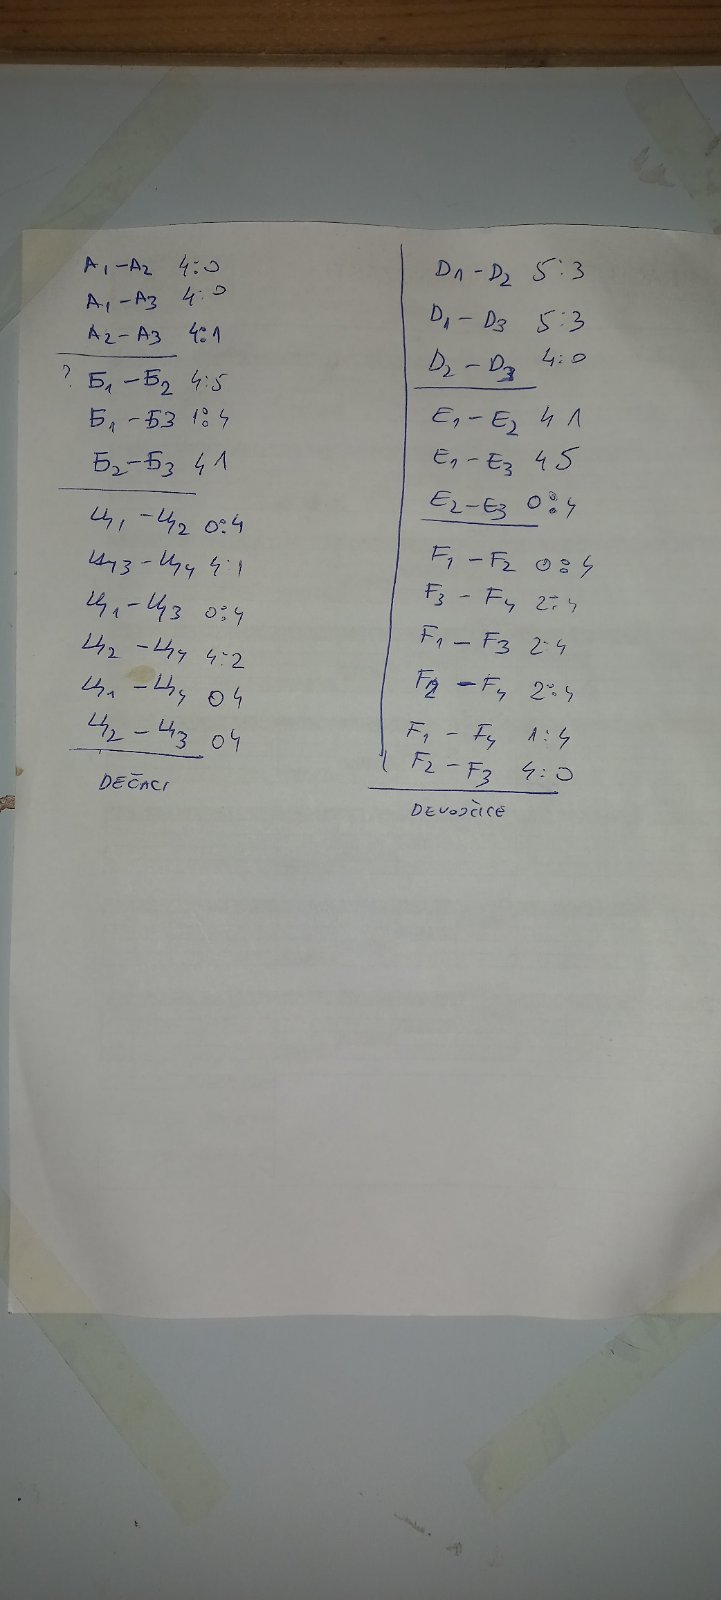 А1-А2 4:0
А1-А3 4:0
А2-А3 4:1
? Б1-Б2 4:5
Б1-Б3 1:4
Б2-Б3 4 1
Ц1-Ц2 0:4
Ц3-Ц4 4:1
Ц1-Ц3 0:4
Ц2-Ц4 4:2
Ц1-Ц4 0 4
Ц2-Ц3 0 4
DEČACI
D1-D2 5:3
D1-D3 5:3
D2-D3 4:0
E1-E2 4 1
E1-E3 4 5
E2-E3 0:4
F1-F2 0:4
F3-F4 2:4
F1-F3 2:4
F2-F4 2:4
F1-F4 1:4
F2-F3 4:0
DEVOJČICE